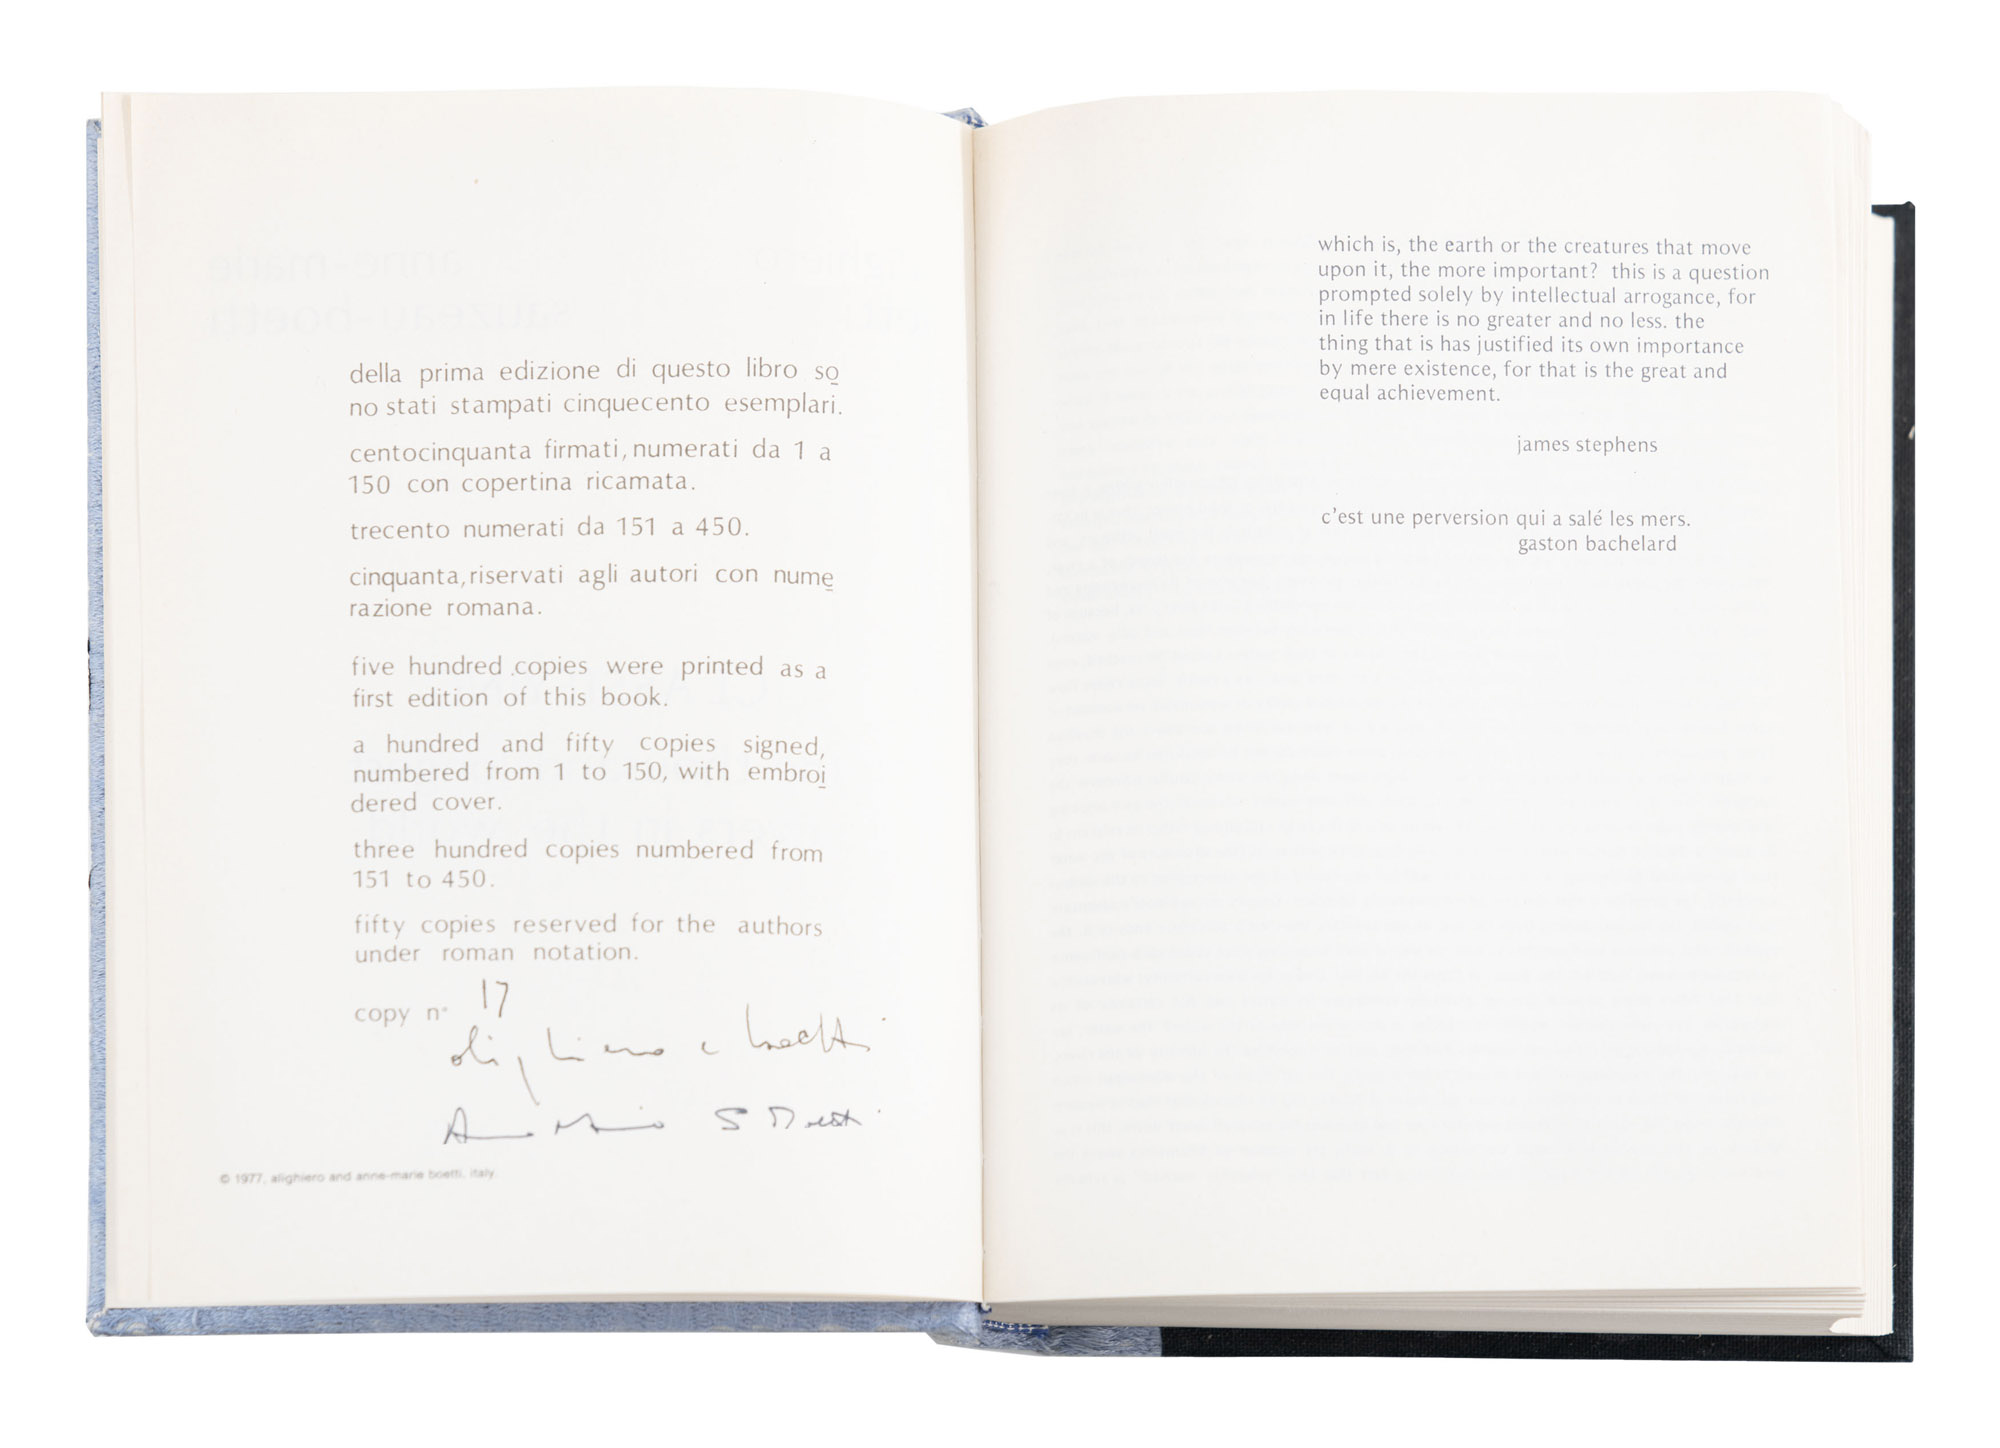 della prima edizione di questo libro so
no stati stampati cinquecento esemplari.
centocinquanta firmati, numerati da 1 a
150 con copertina ricamata.
trecento numerati da 151 a 450.
cinquanta, riservati agli autori con nume
razione romana.
five hundred copies were printed as a
first edition of this book.
a hundred and fifty copies signed,
numbered from 1 to 150, with embroi
dered cover.
three hundred copies numbered from
151 to 450.
fifty copies reserved for the authors
under roman notation.
copy n° 17
alighiero e boetti
Anne Marie S Boetti
© 1977, alighiero and anne-marie boetti, italy.
which is, the earth or the creatures that move
upon it, the more important? this is a question
prompted solely by intellectual arrogance, for
in life there is no greater and no less. the
thing that is has justified its own importance
by mere existence, for that is the great and
equal achievement.
james stephens
c'est une perversion qui a salé les mers.
gaston bachelard